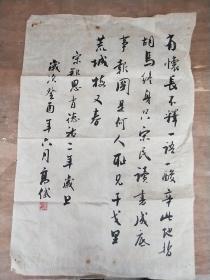 有懷長不釋一語一酸辛此地暫
胡馬終身只宋民讀書成底
事報國是何人恥見干戈里
荒城梅又春
宋鄭思肖德祐二年歲旦
歲次癸酉年六月